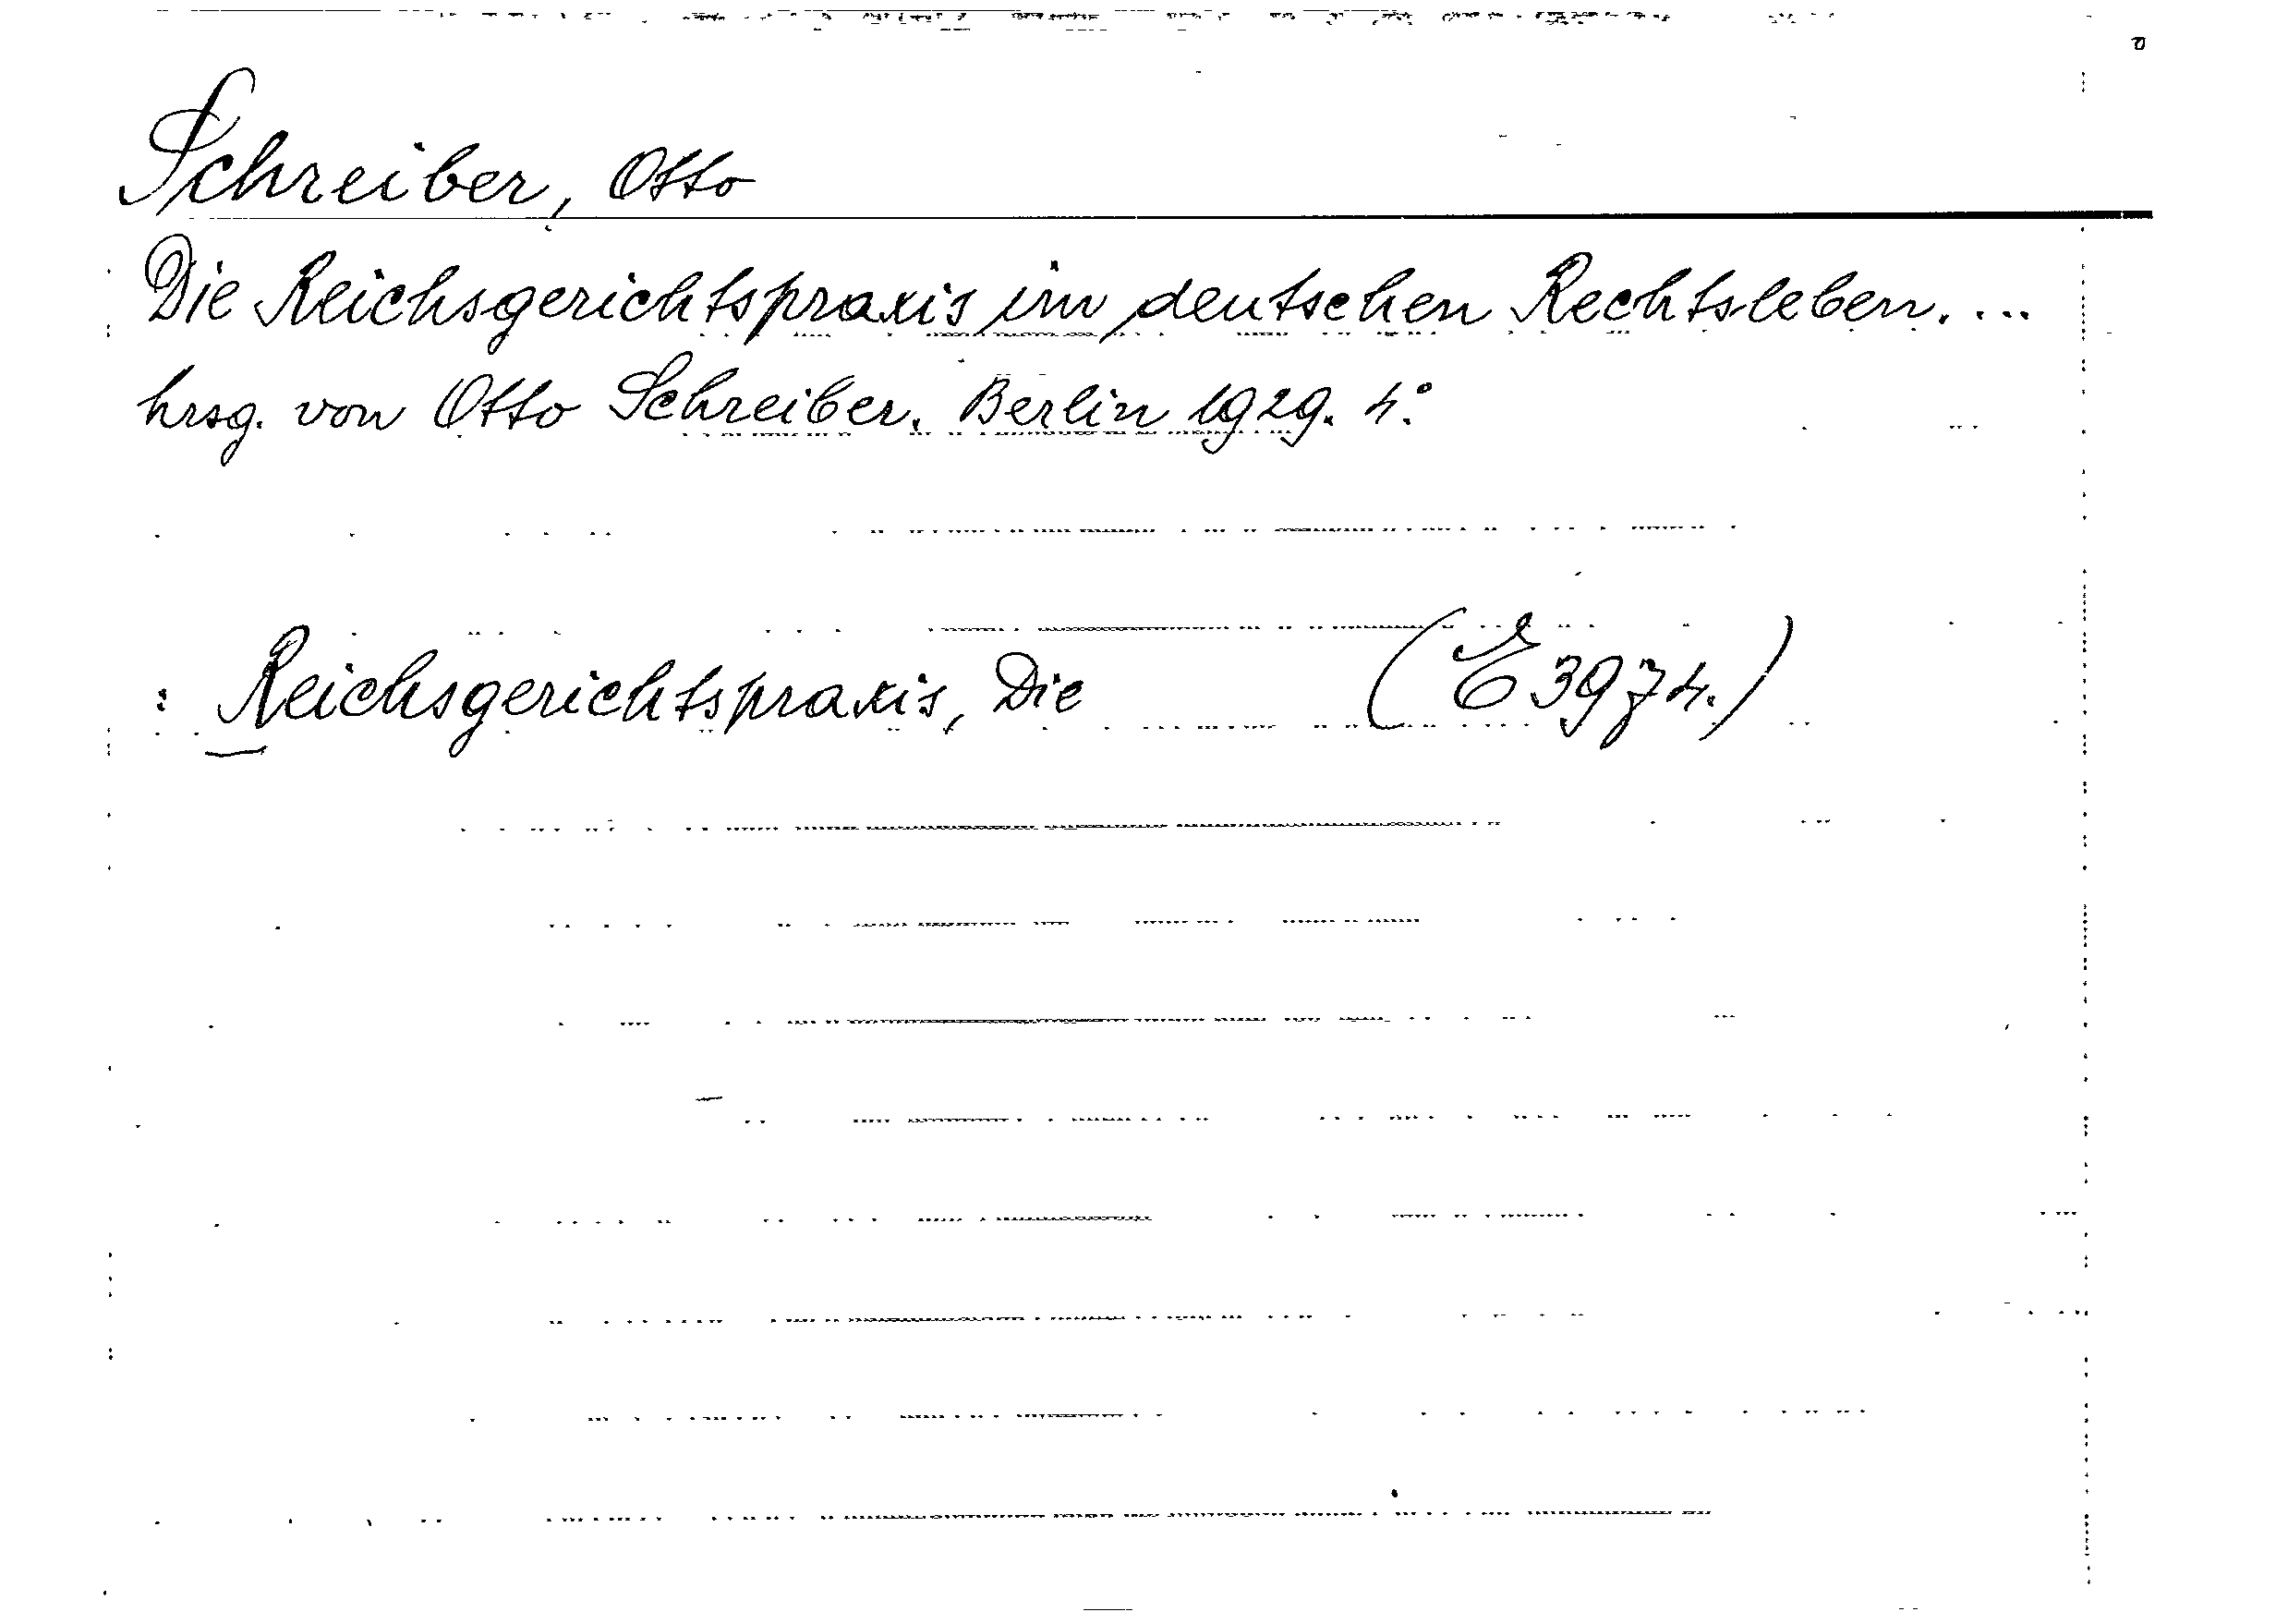 Schreiber, Otto
Die Reichsgerichtspraxis im deutschen Rechtsleben. ...
hrsg. von Otto Schreiber. Berlin 1929. 4°.
: Reichsgerichtspraxis, Die (E 3974.)